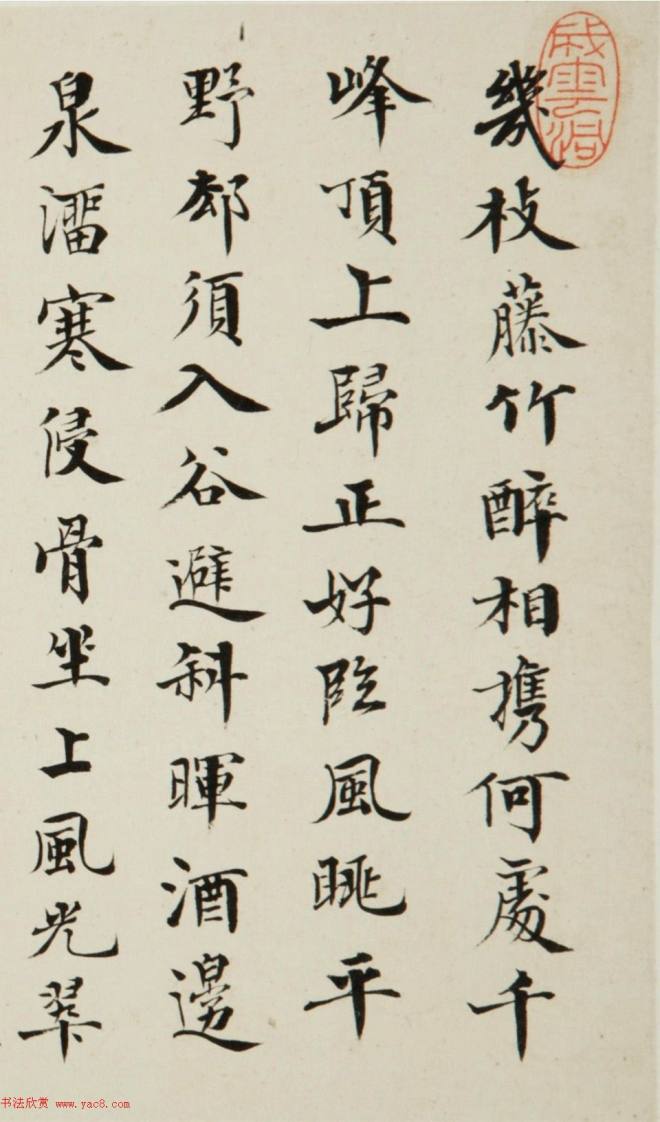 幾枝藤竹醉相携何處千
峰頂上歸正好臨風眺平
野却須入谷避斜暉酒邊
泉溜寒侵骨坐上風光翠
书法欣赏 www.yac8.com